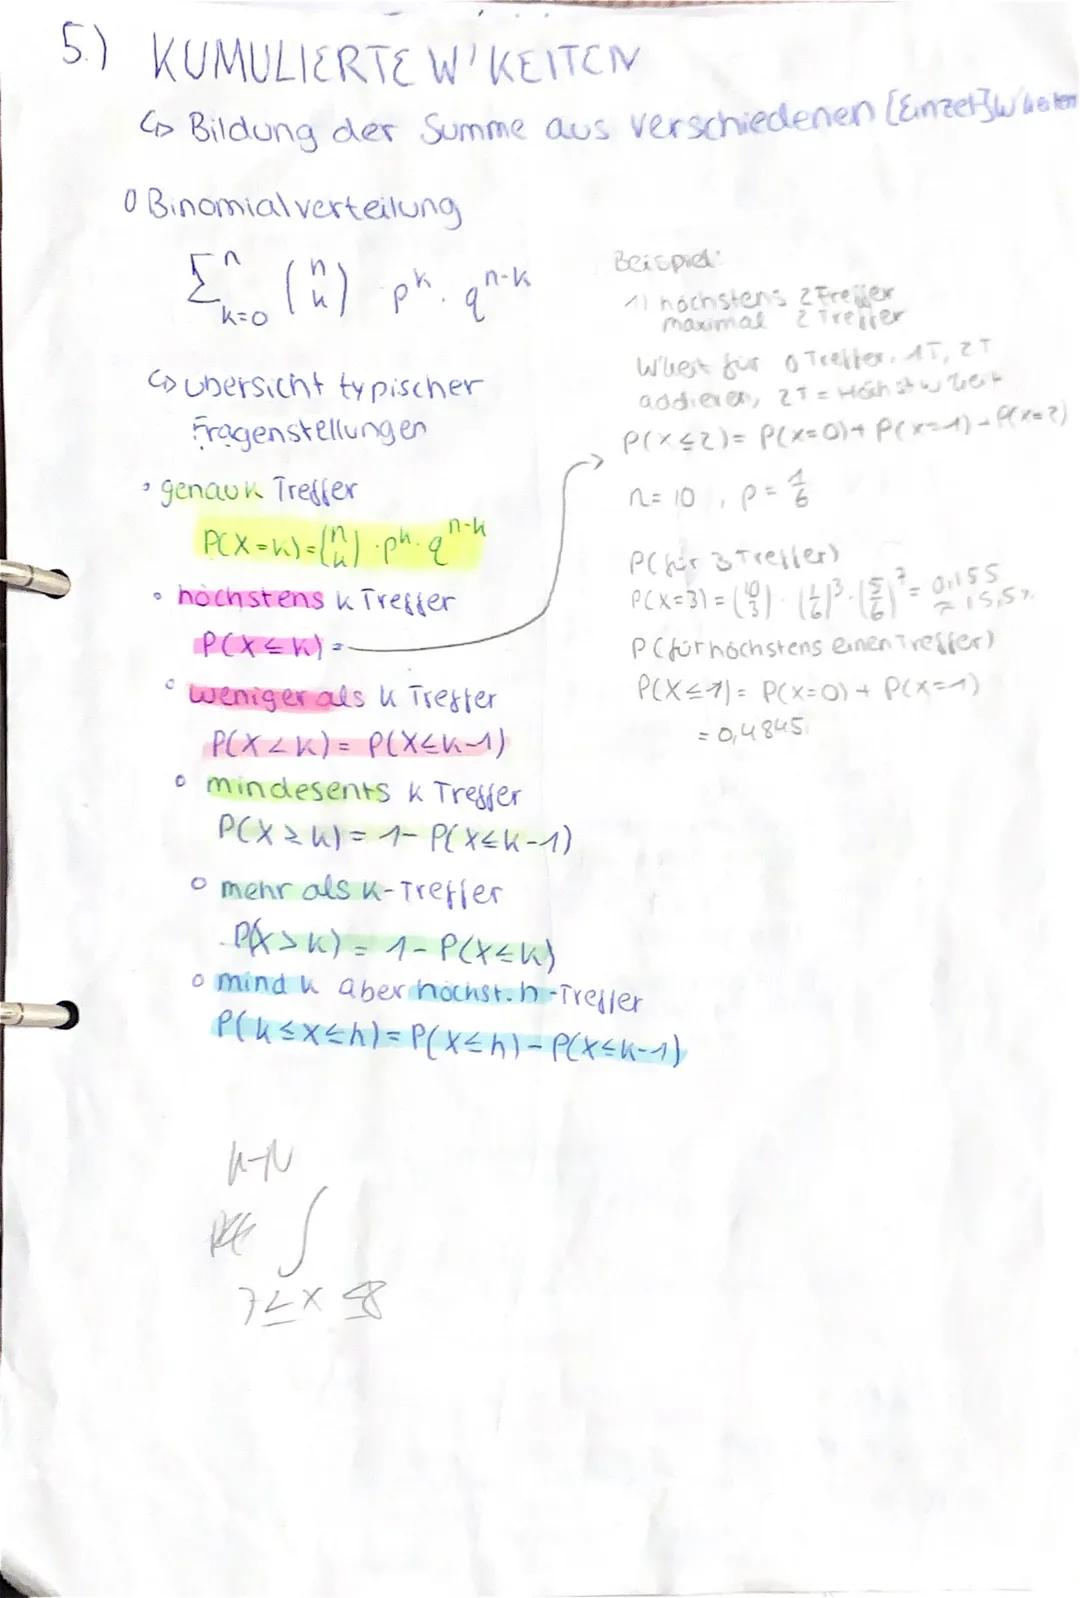 5.) KUMULIERTE W'KEITEN
↳ Bildung der Summe aus verschiedenen [Einzel]W'keiten
o Binomialverteilung
∑ⁿₖ₌₀ (n k) p^k · q^n-k
↳ übersicht typischer
Fragenstellungen
• genau k Treffer
P(X=k)=(n k) · p^k · q^n-k
• höchstens k Treffer
P(X≤k) =
° weniger als k Treffer
P(X<k) = P(X≤k-1)
o mindesents k Treffer
P(X≥k) = 1- P(X≤k-1)
o mehr als k-Treffer
P(X>k) = 1- P(X≤k)
o mind k aber höchst. h-Treffer
P(k≤x≤h) = P(X≤h) - P(X≤k-1)
Beispiel:
1) höchstens 2 Treffer
maximal 2 Treffer
W'keit für 0 Treffer, 1T, 2T
addieren, 2T =
P(X≤2) = P(X=0) + P(X=1) + P(X=2)
n = 10 , p = 1/6
P(für 3 Treffer)
P(X=3) = (10 3) · (1/6)³ · (5/6)⁷ = 0,155
≈ 15,5%
P(für höchstens einen Treffer)
P(X≤1) = P(X=0) + P(X=1)
= 0,4845
∫
7≤X≤8